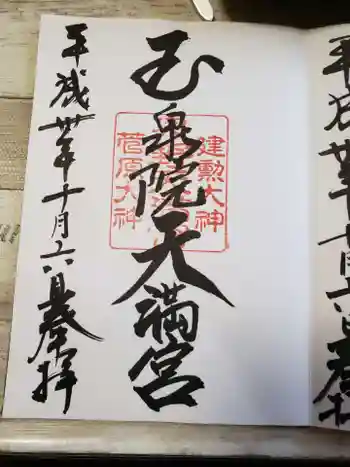 平成卅年十月六日奉拝
建勲大神
玉泉院天満宮
菅原大神
平成卅年十月六日奉拝